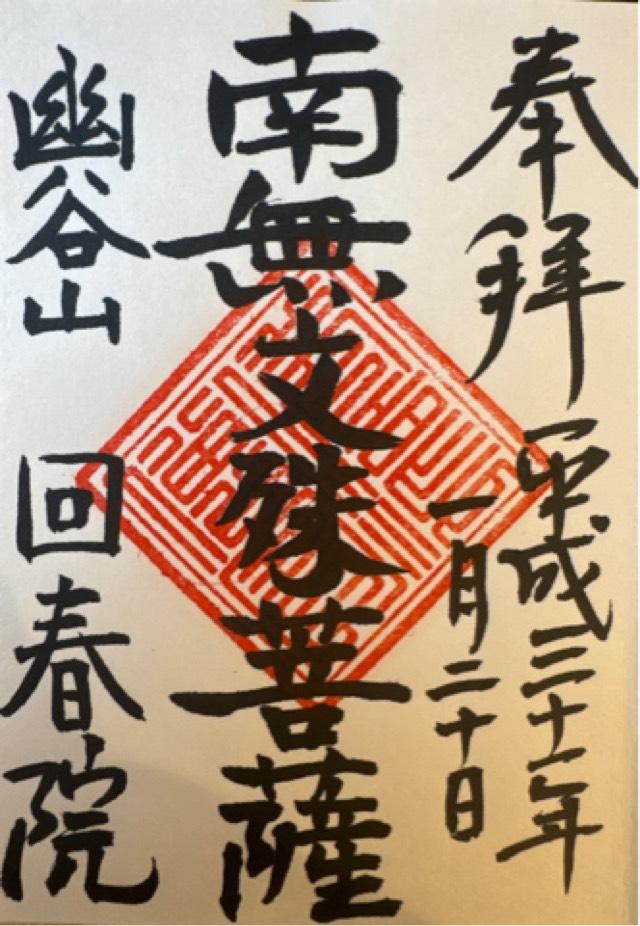 奉拜 平成三十一年
一月二十日
南無文殊菩薩
幽谷山 回春院